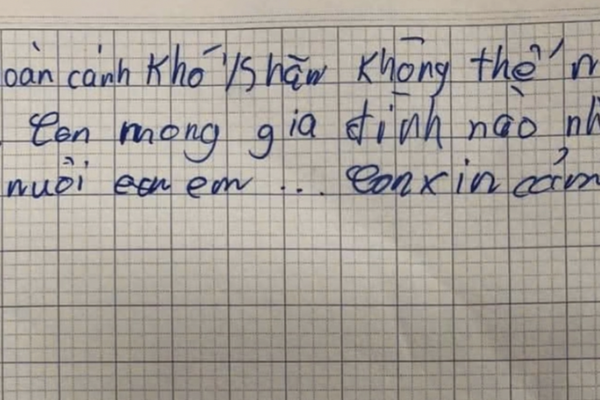 oàn cảnh Khó khăn không thể n
. Con mong gia đình nào nh
nuôi con em ... Con xin cảm